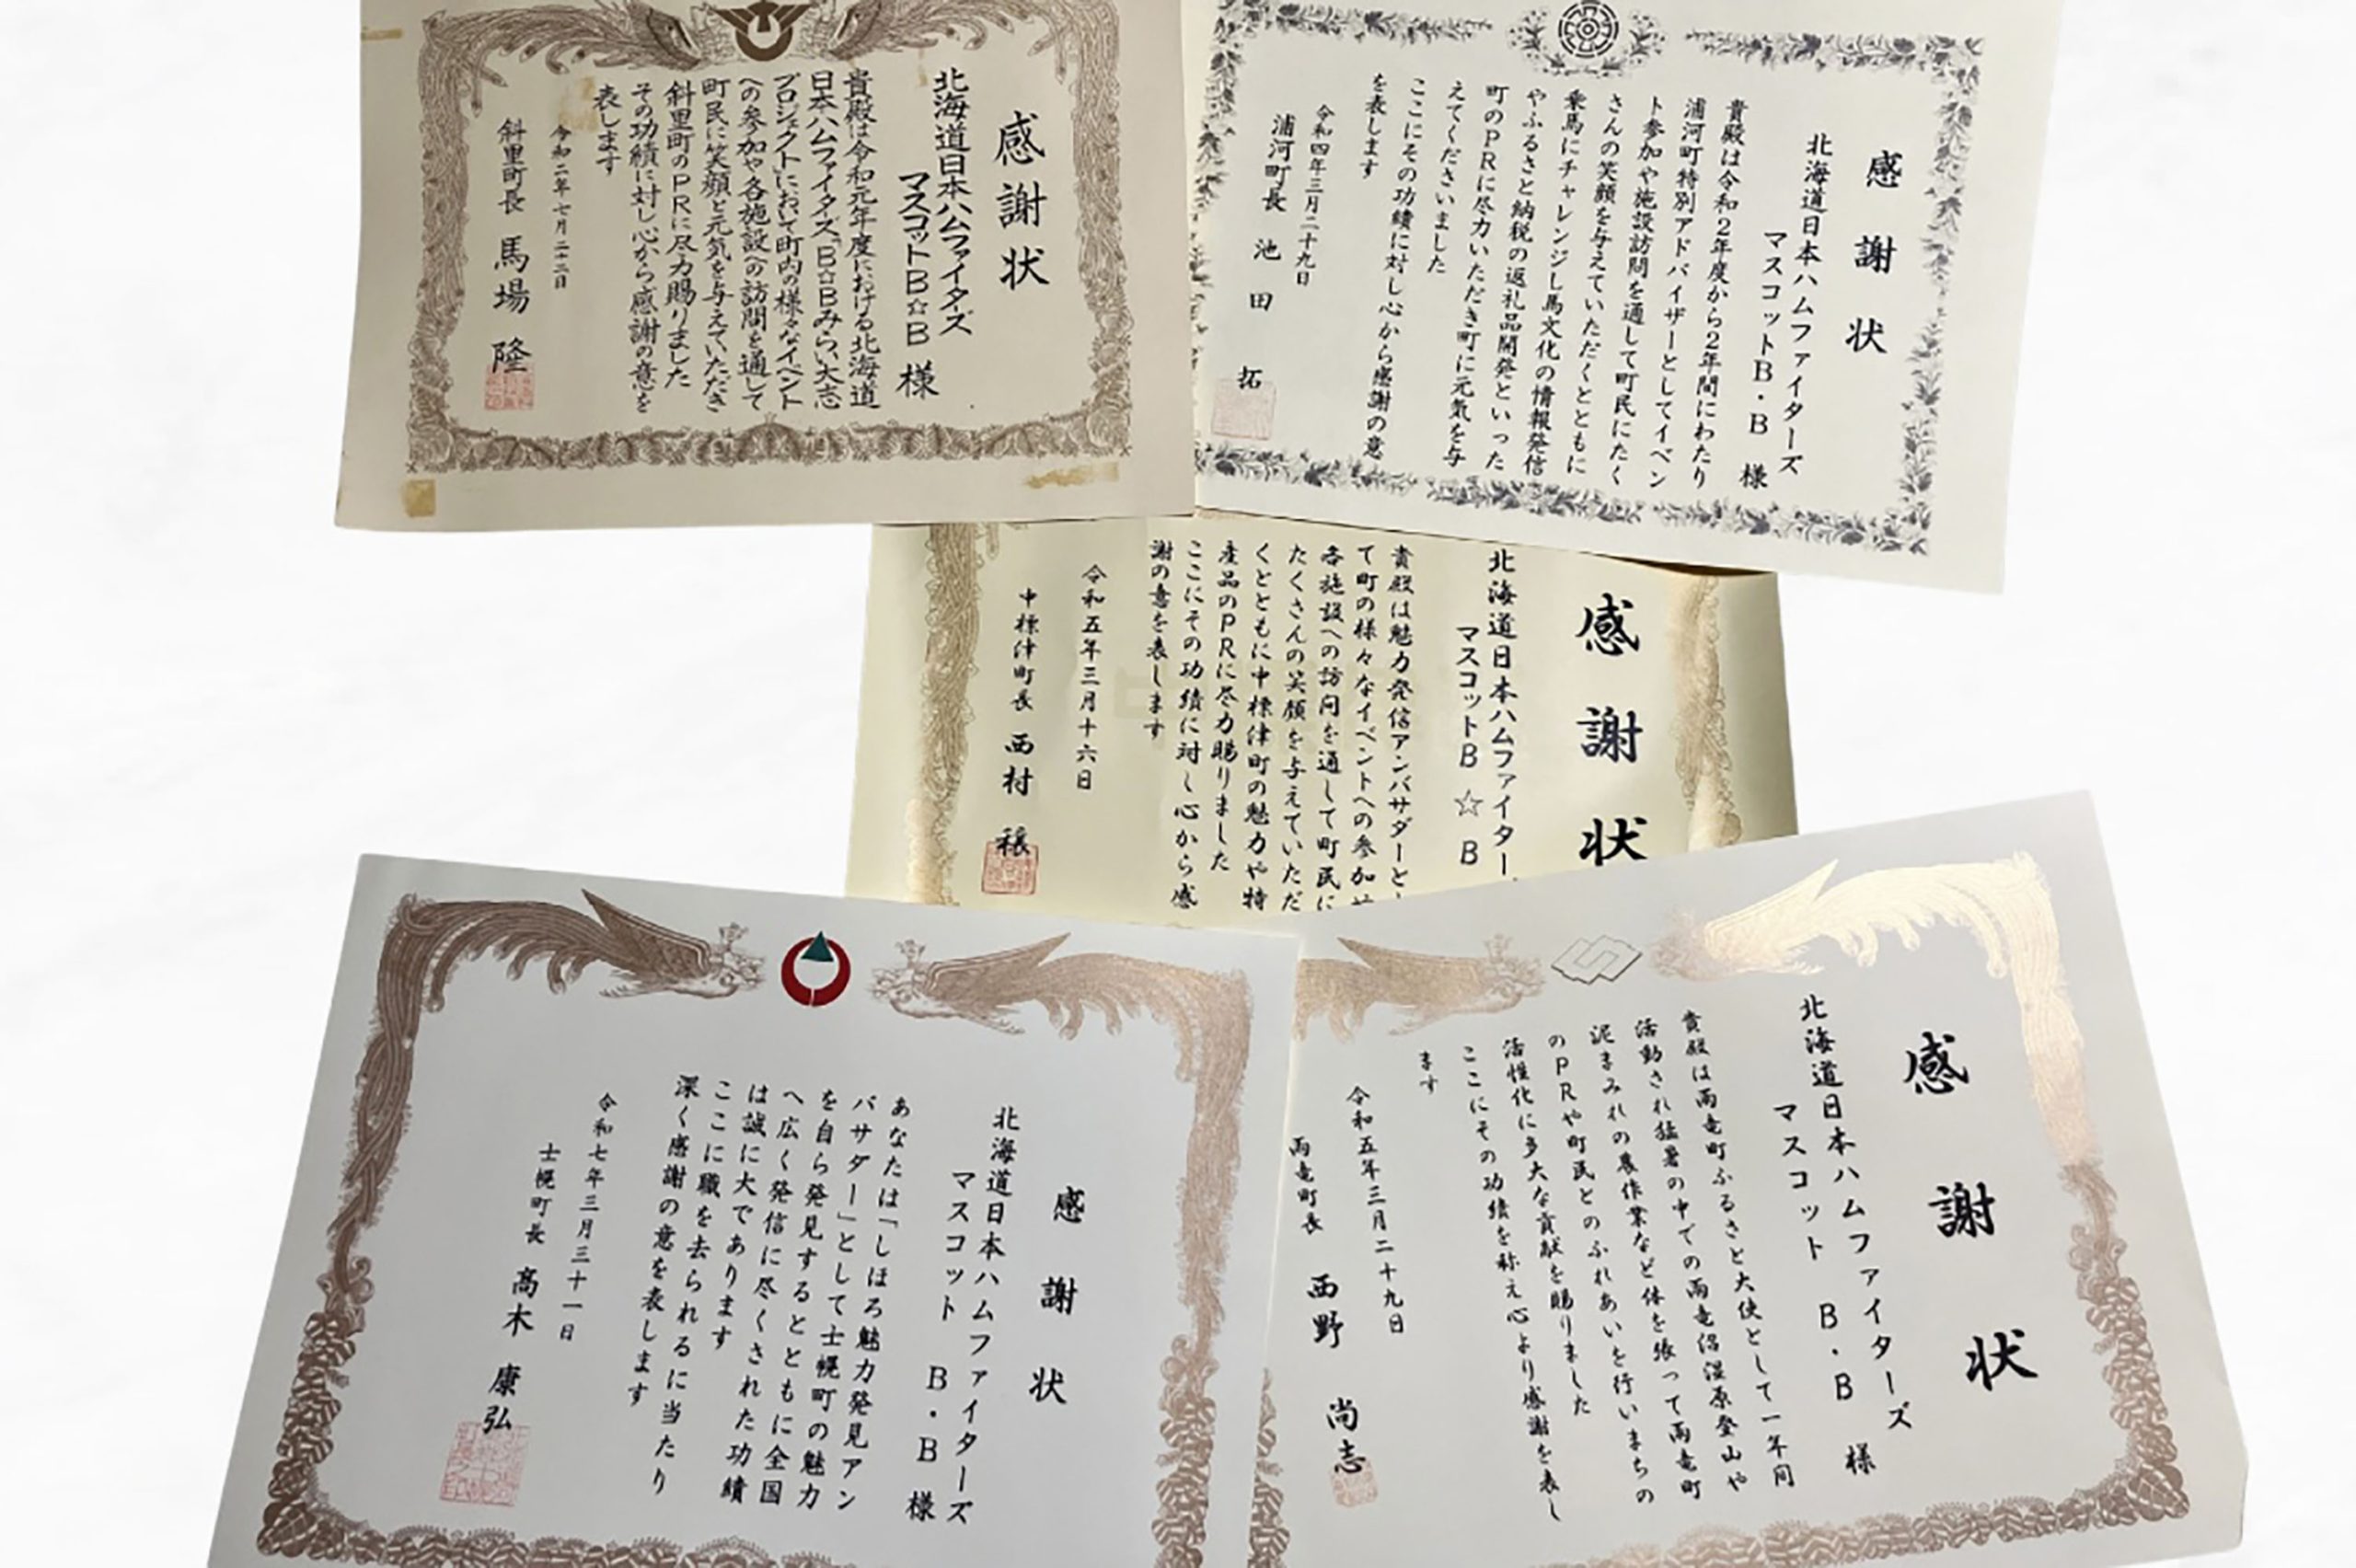 感謝状
北海道日本ハムファイターズ
マスコットB☆B 様
貴殿は令和元年度における北海道
日本ハムファイターズ「B☆Bみらい大志
プロジェクト」において町内の様々なイベント
への参加や各施設への訪問を通して
町民に笑顔と元気を与えていただき
斜里町のPRに尽力賜りました
その功績に対し心から感謝の意を
表します
令和二年七月二十二日
斜里町長 馬場 隆
感謝状
北海道日本ハムファイターズ
マスコットB・B 様
貴殿は令和2年度から2年間にわたり
浦河町特別アドバイザーとしてイベン
ト参加や施設訪問を通して町民にたく
さんの笑顔を与えていただくとともに
乗馬にチャレンジし馬文化の情報発信
やふるさと納税の返礼品開発といった
町のPRに尽力いただき町に元気を与
えてくださいました
ここにその功績に対し心から感謝の意
を表します
令和四年三月二十九日
浦河町長 池田 拓
感謝状
北海道日本ハムファイター
マスコットB☆B
貴殿は魅力発信アンバサダーと
て町の様々なイベントへの参加
各施設への訪問を通して町民に
たくさんの笑顔を与えていただ
くとともに中標津町の魅力や特
産品のPRに尽力賜りました
ここにその功績に対し心から感
謝の意を表します
令和五年三月十六日
中標津町長 西村 穣
感謝状
北海道日本ハムファイターズ
マスコット B・B 様
あなたは「しほろ魅力発見アン
バサダー」として士幌町の魅力
を自ら発見するとともに全国
へ広く発信に尽くされた功績
は誠に大であります
ここに職を去られるに当たり
深く感謝の意を表します
令和七年三月三十一日
士幌町長 高木 康弘
感謝状
北海道日本ハムファイターズ
マスコット B・B 様
貴殿は雨竜町ふるさと大使として一年間
活動され猛暑の中での雨竜沼湿原登山や
泥まみれの農作業など体を張って雨竜町
のPRや町民とのふれあいを行いまちの
活性化に多大な貢献を賜りました
ここにその功績を称え心より感謝を表し
ます
令和五年三月二十九日
雨竜町長 西野 尚志